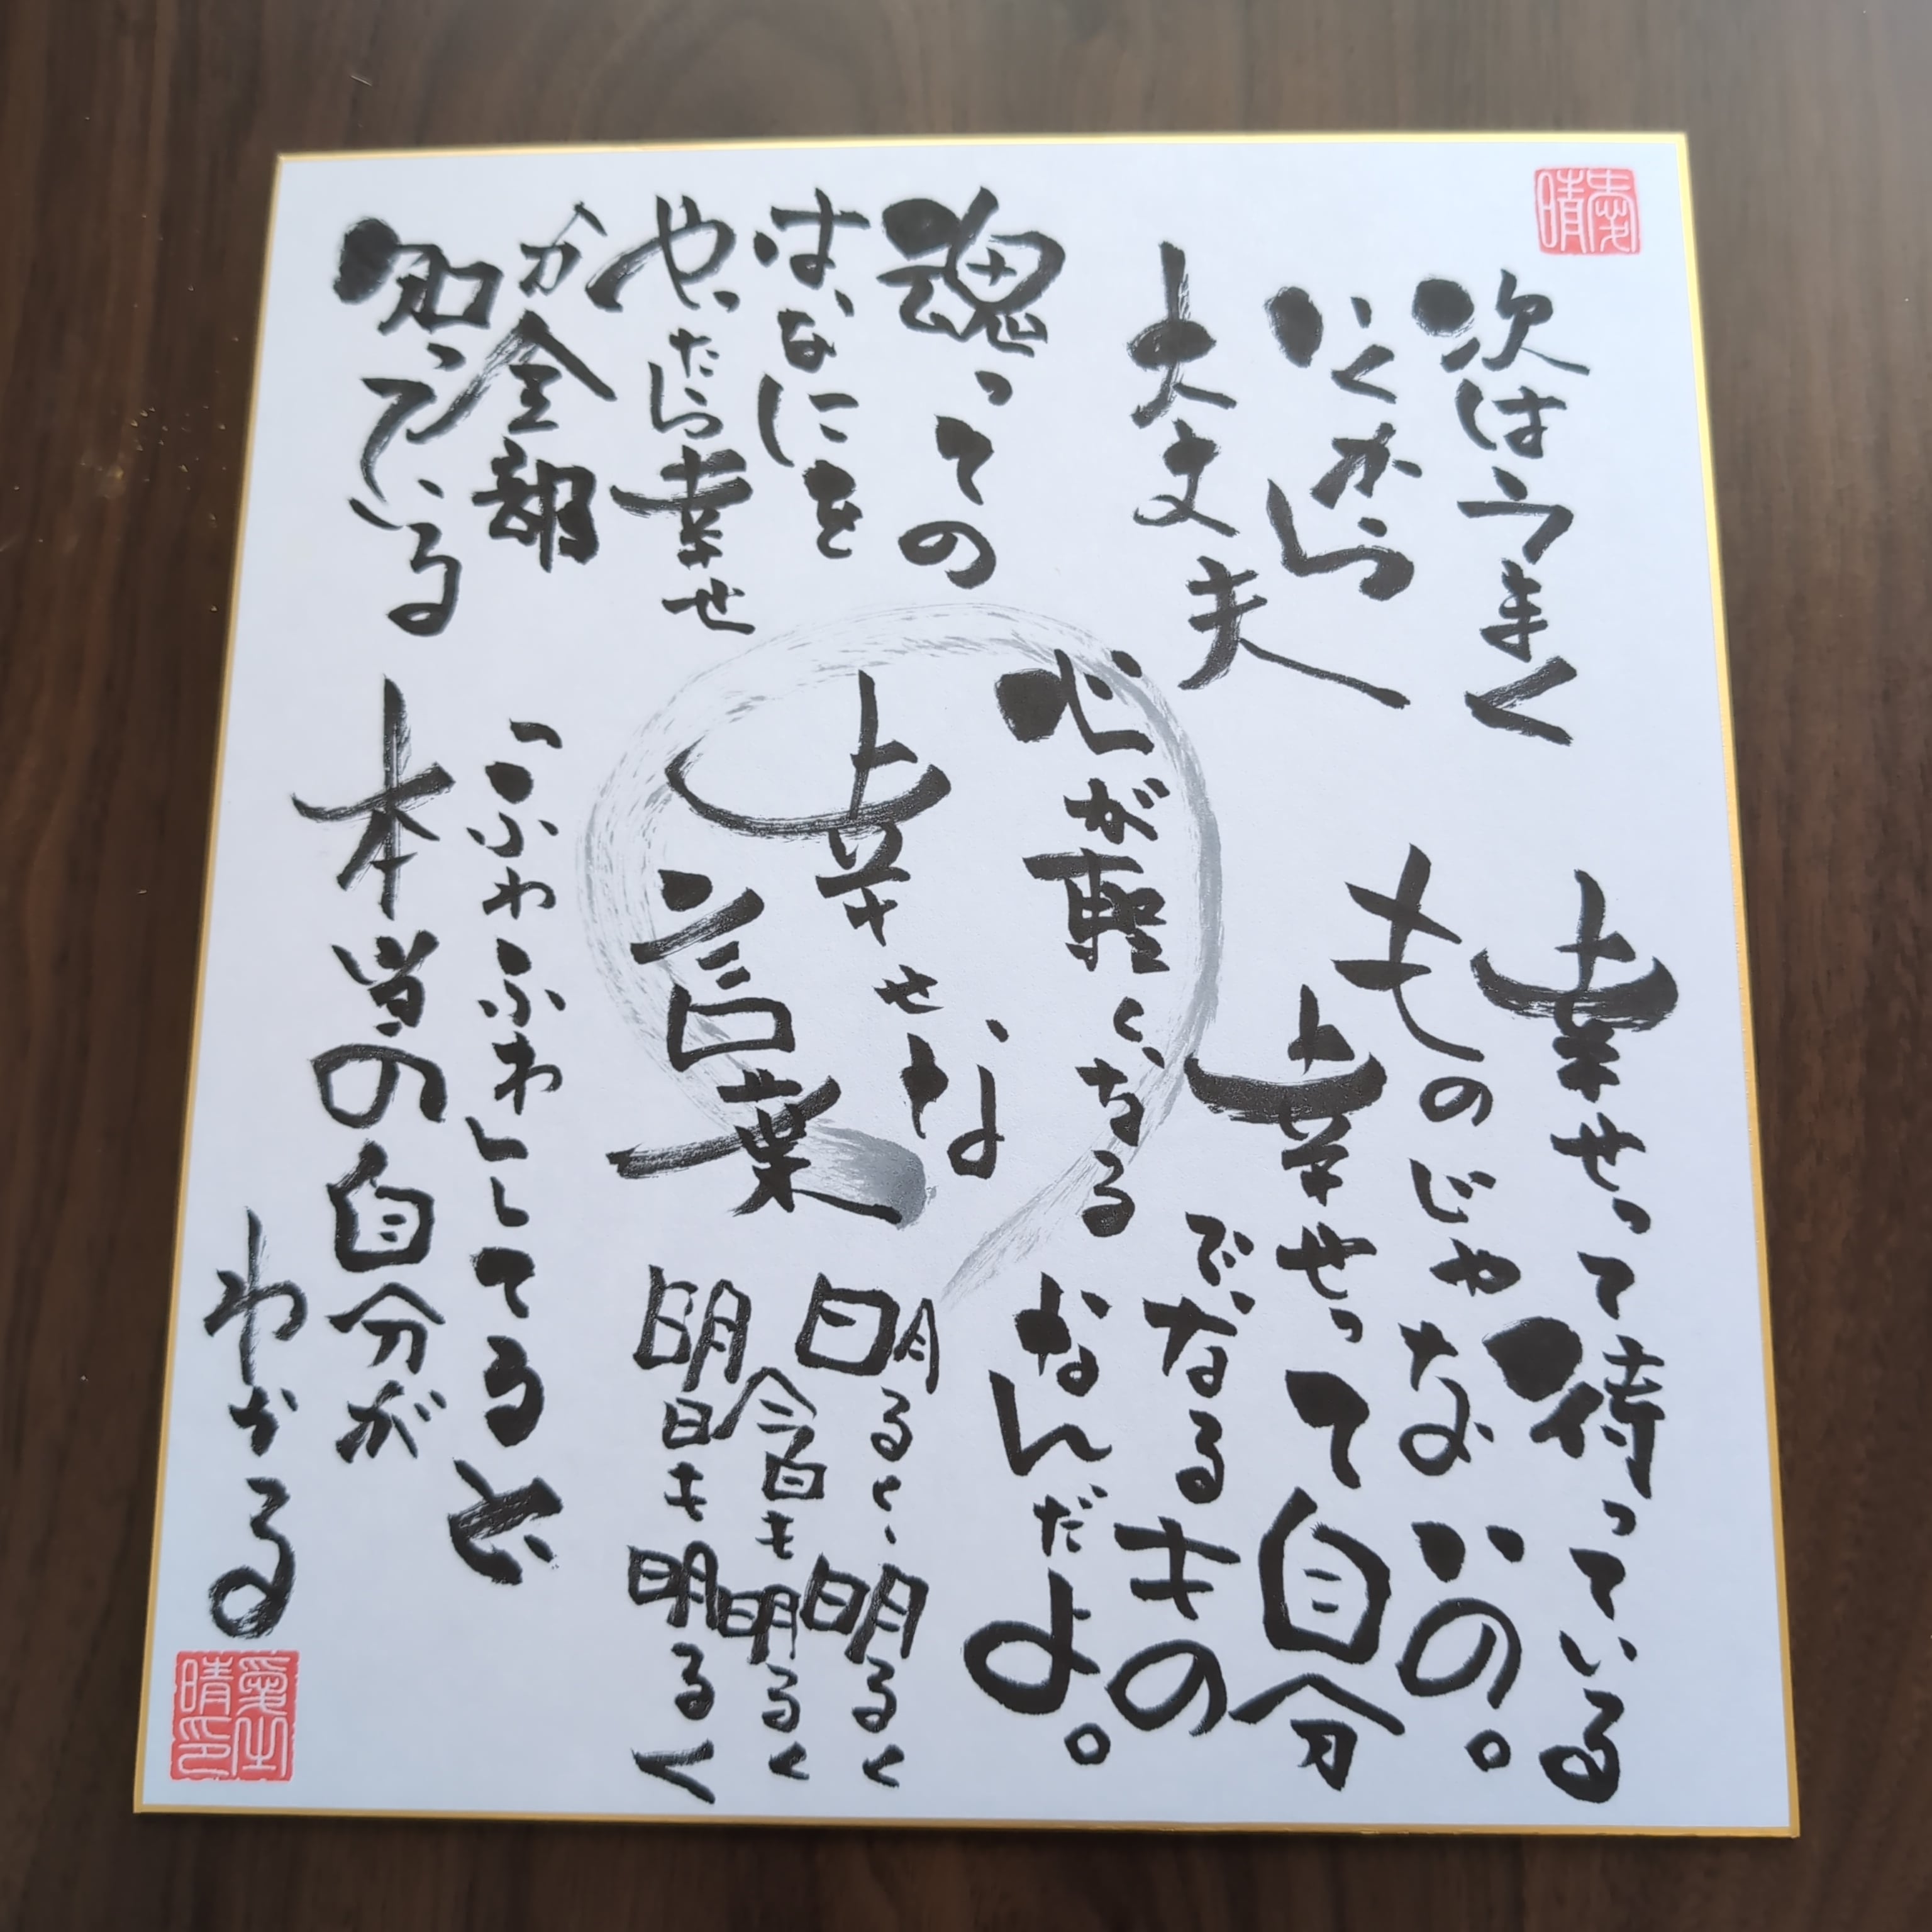 次はうまく
いくから
大丈夫
魂っての
は、なにを
やったら幸せ
か全部
知っている
心が軽くなる
幸せな
言葉
幸せって待っている
ものじゃないの。
幸せって自分
でなるもの
なんだよ。
明るく、明るく
今日も明るく
明日も明るく
「ふわふわ」してると
本当の自分が
わかる